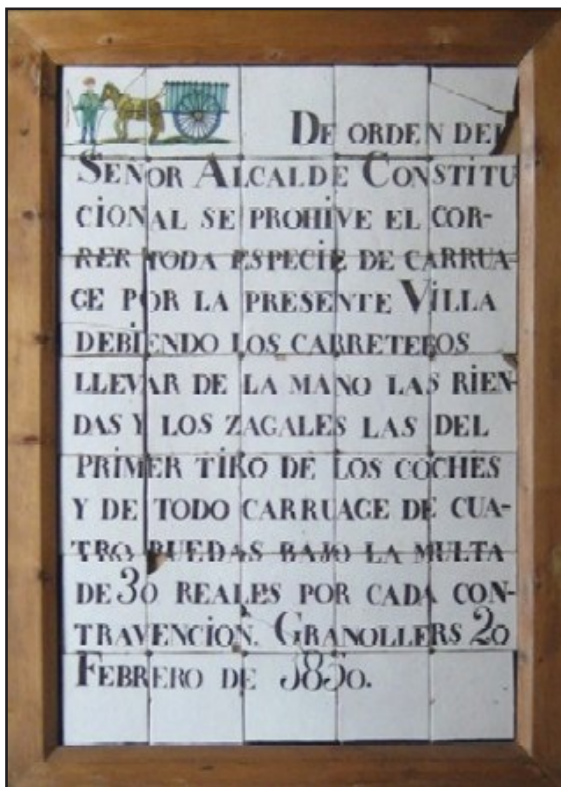 DE ORDEN DEL
SEÑOR ALCALDE CONSTITU
CIONAL SE PROHIVE EL COR-
RER TODA ESPECIE DE CARRUA-
GE POR LA PRESENTE VILLA
DEBIENDO LOS CARRETEROS
LLEVAR DE LA MANO LAS RIEN-
DAS Y LOS ZAGALES LAS DEL
PRIMER TIRO DE LOS COCHES
Y DE TODO CARRUAGE DE CUA-
TRO RUEDAS BAJO LA MULTA
DE 30 REALES POR CADA CON-
TRAVENCION. GRANOLLERS 20
FEBRERO DE 1850.